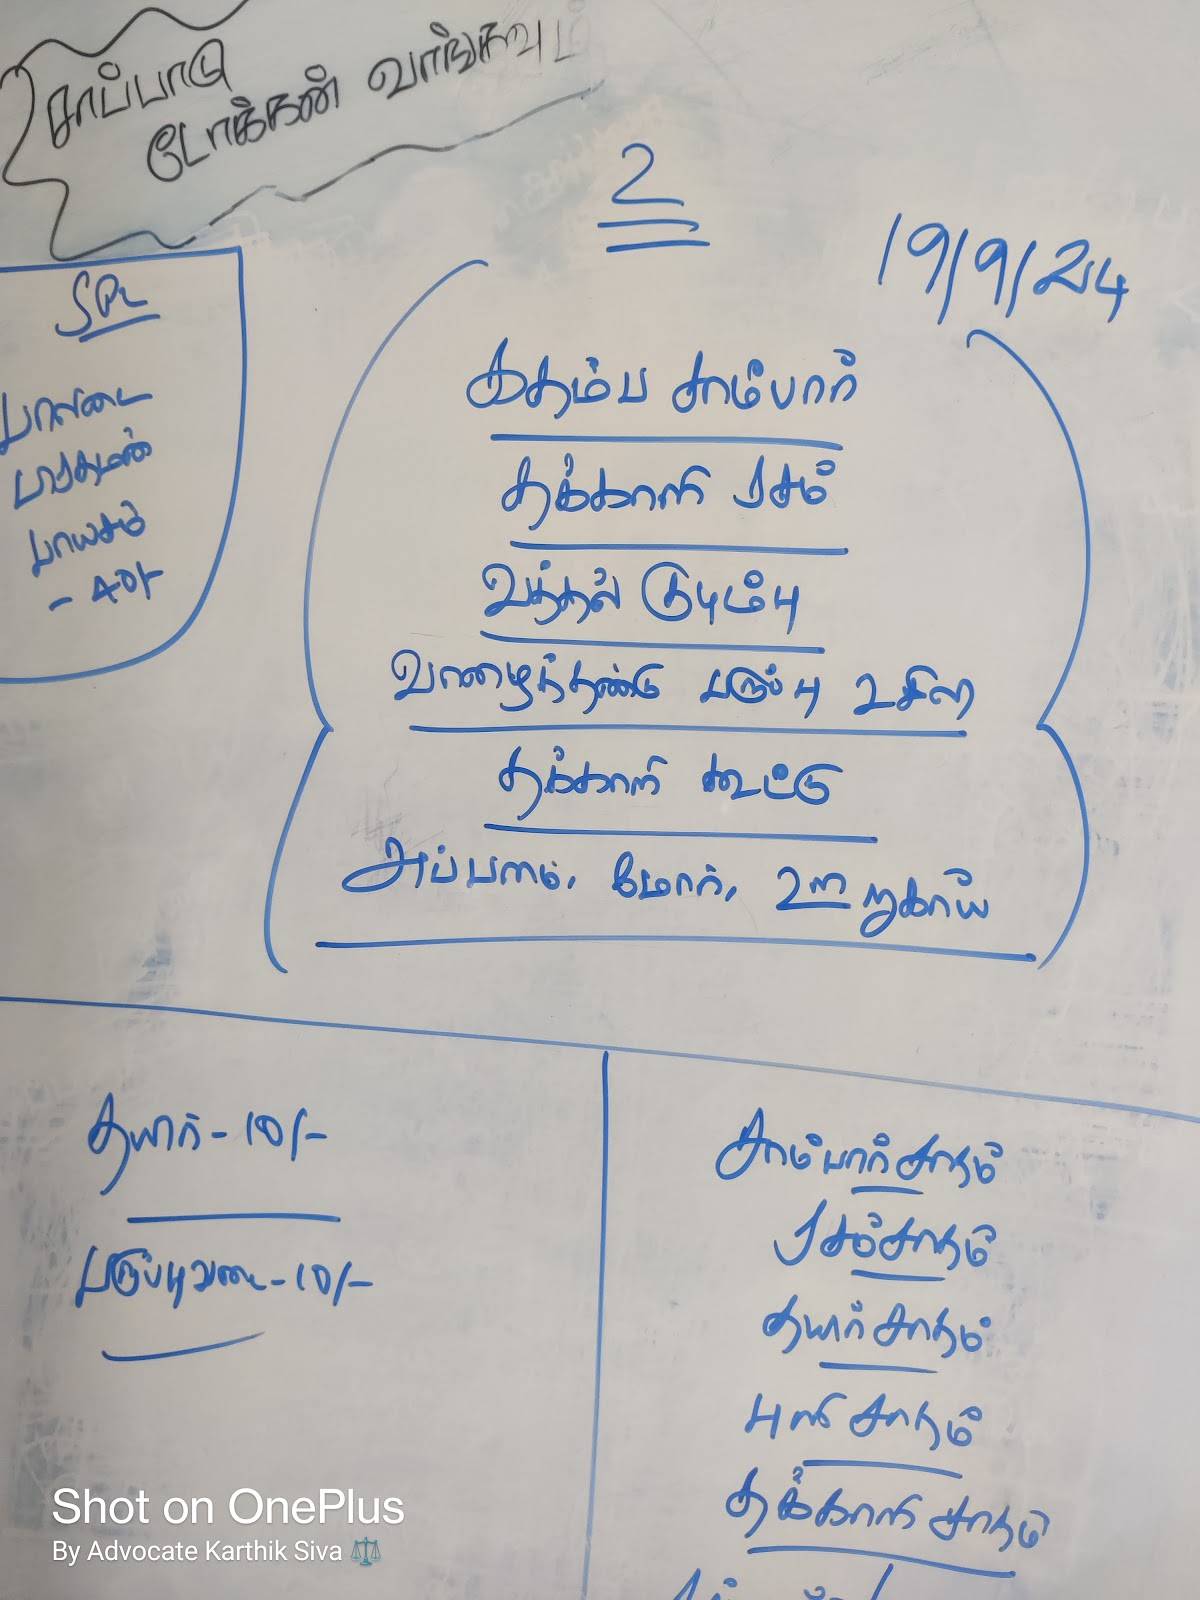 சாப்பாடு
டோக்கன் வாங்கவும்
2
19/9/24
SPL
பாலடை
பரதமன்
பாயசம்
- 40/-
கதம்ப சாம்பார்
தக்காளி ரசம்
வத்தல் குழம்பு
வாழைத்தண்டு பருப்பு உசிலி
தக்காளி கூட்டு
அப்பளம், மோர், ஊறுகாய்
தயிர் - 10/-
பருப்புவடை - 10/-
சாம்பார் சாதம்
ரசம் சாதம்
தயிர் சாதம்
புளி சாதம்
தக்காளி சாதம்
Shot on OnePlus
By Advocate Karthik Siva